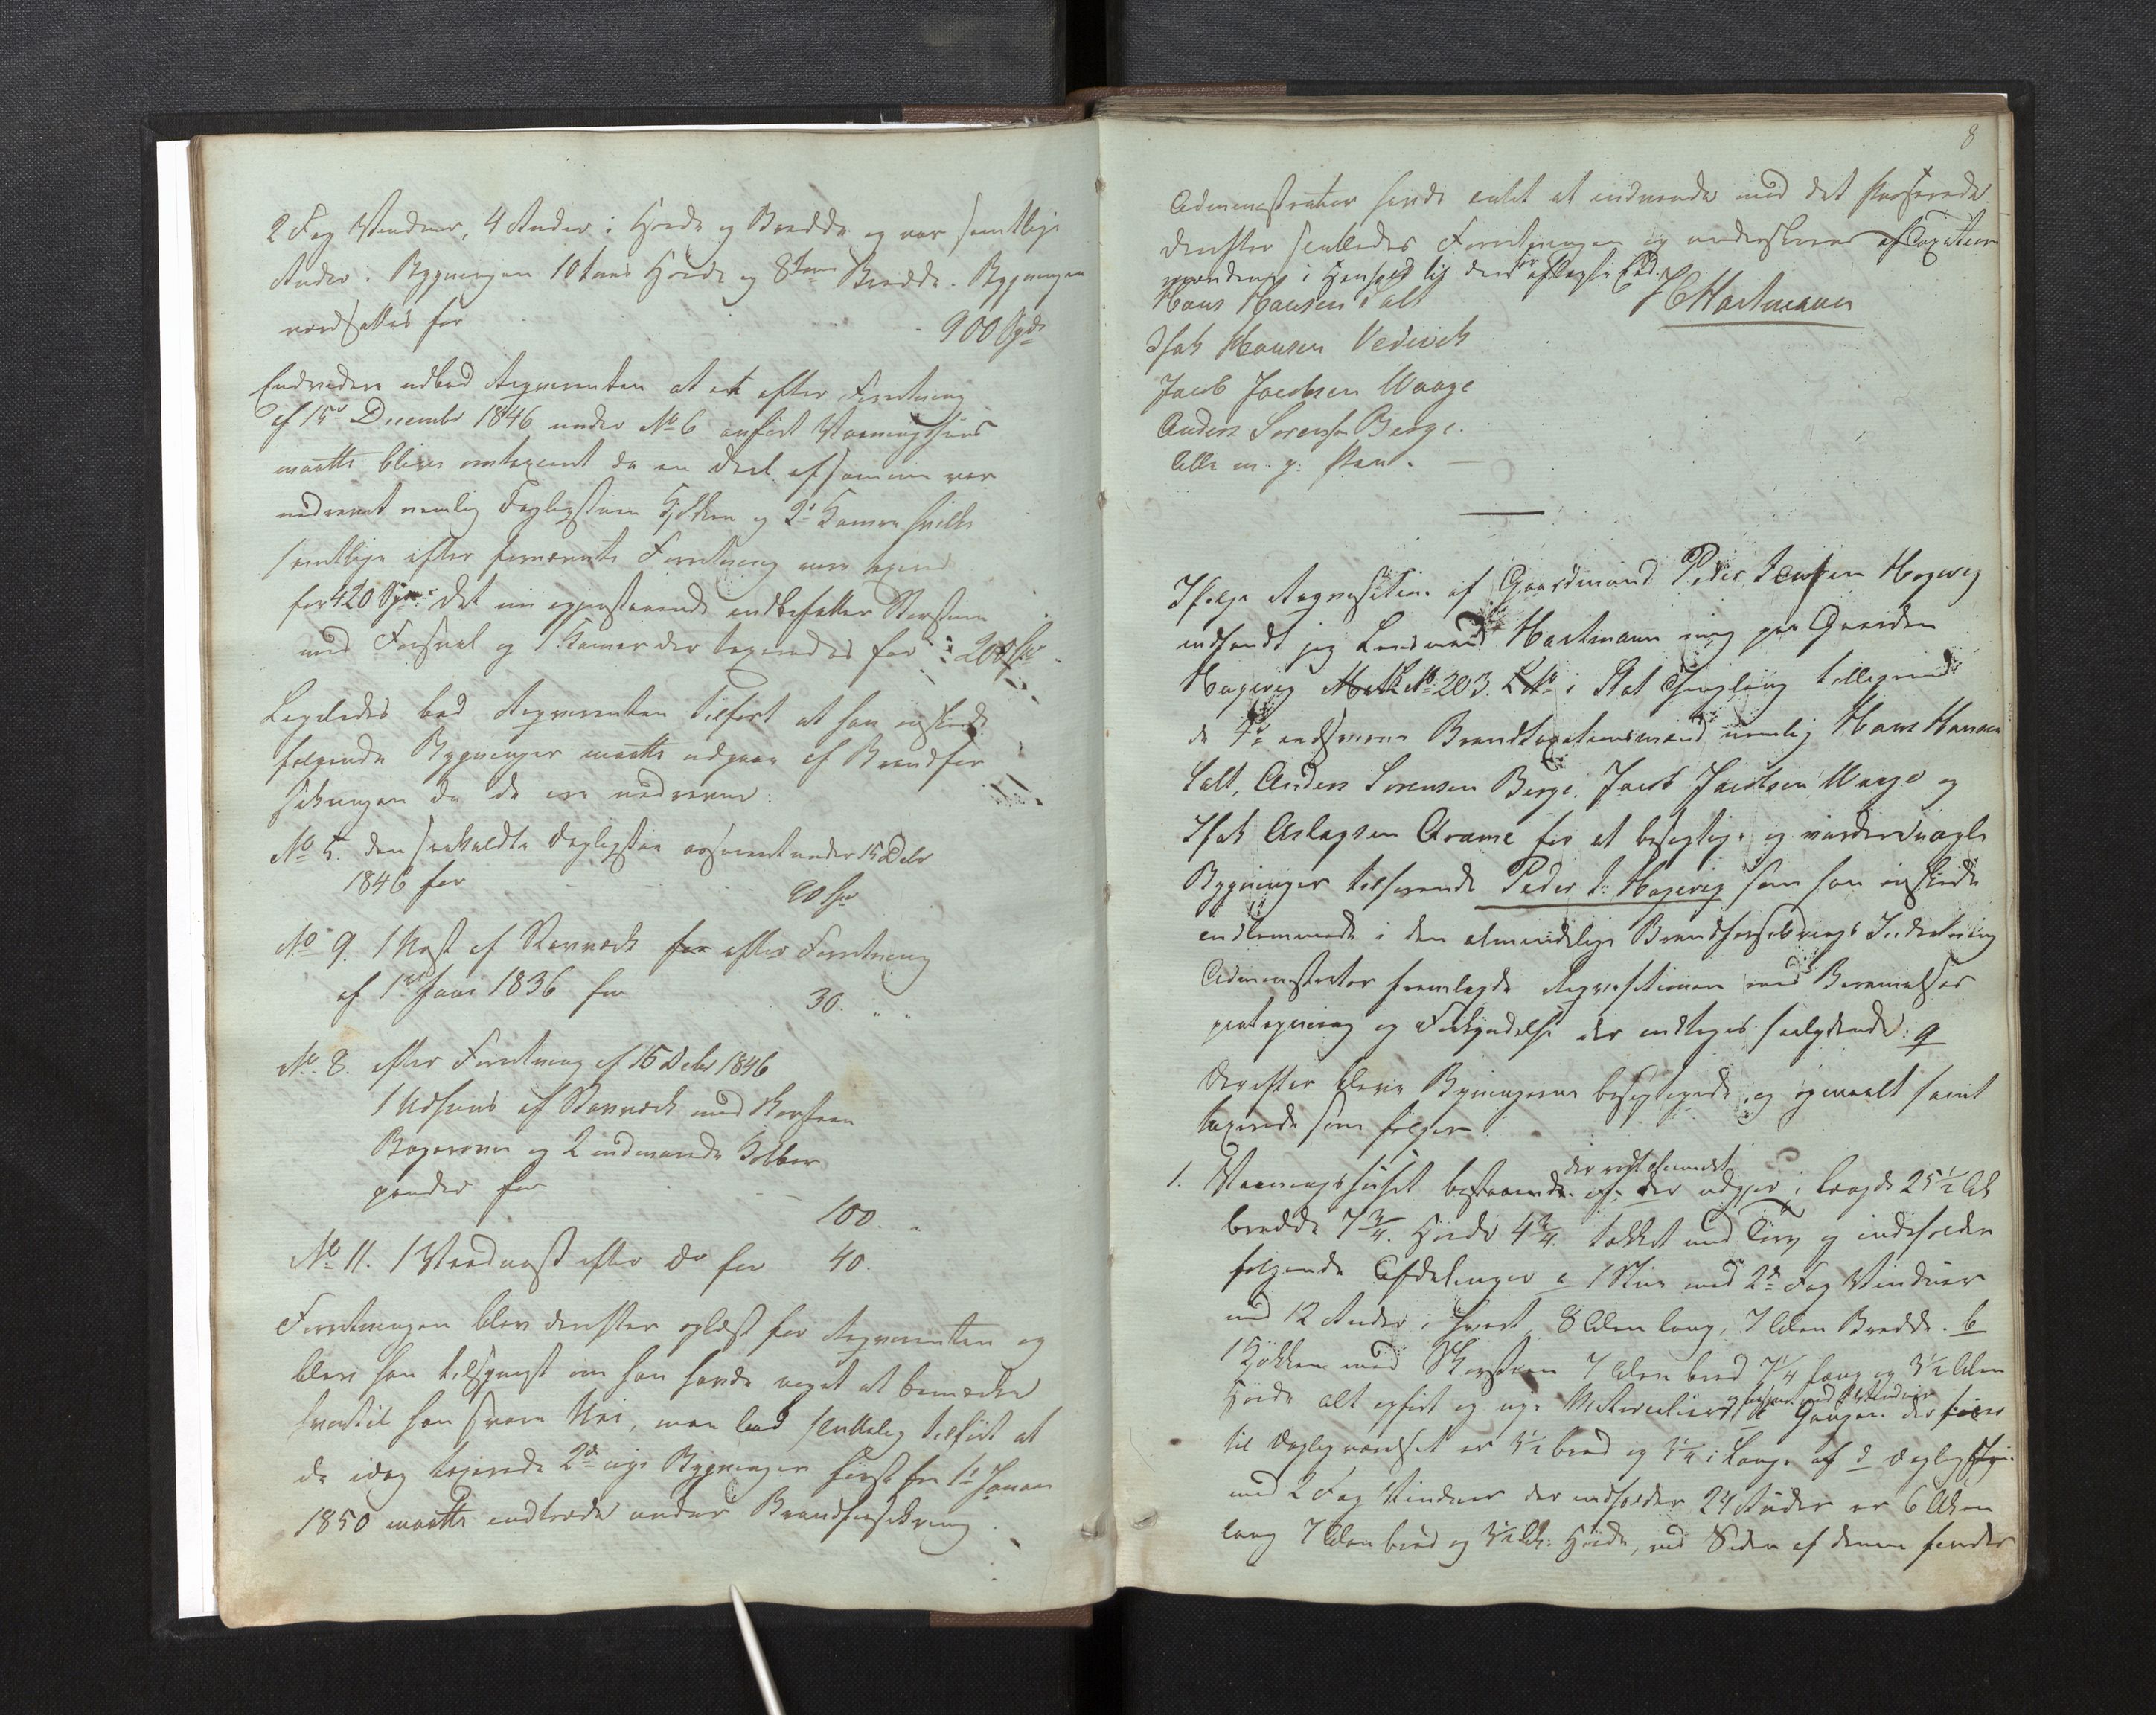 2 Fag Vinduer, 4 Ruder i Høide og Bredde og var samtlige
Ruder i Bygningen 10 tom Høide og 8 Tom Bredde. Bygningen
værdsattes for 900 Spd
Endvidere udbad Requirenten at et efter Forretning
af 15de December 1846 under No 6 anført Vaaningshuus
maatte blive omtaxeret da en Deel af samme var
nedrevet nemlig Daglystuen Kjøkken og 2de Kamre hvilke
samtlige efter fornævnte Forretning vare taxeret
for 420 Spd. det nu gjenstaaende indbefatter Storstuen
med Forsval og 1 Kamer der taxeredes for 200 Spd
Ligeledes bad Requirenten tilført at han ønskede
følgende Bygninger maatte udgaae af Brandfor
sikringen da de ere nedrevne:
No 5. den saakaldte Daglystue assureret under 15 Decbr
1846 for 90 Spd
No 9. 1 Nøst af Stavværk for efter Forretning
af 1ste Juni 1836 for 30. " "
No 8. efter Forretning af 15 Decbr 1846
1 Udhuus af Stavværk med Skorsteen
Bagerovn og 2 indmurede Kobber
pander for 100. "
No 11. 1 Vaadnøst efter do for 40.
Forretningen blev derefter oplæst for Requirenten og
blev han tilspurgt om han havde noget at bemærke
hvortil han svarede Nei, men bad sluttelig tilført at
de idag taxerede 2de nye Bygninger først fra 1ste Januar
1850 maatte indtræde under Brandforsikring.
8
Administrator havde intet at indvende mod det passerede.
Derefter sluttedes Forretningen og underskrives af Taxations
mændene i Henhold til deres aflagte Eed.
Hans Hansen Talt HHartmann
Isak Hansen Vedvik
Jacob Jacobsen Waage
Anders Sørensen Berge.
Alle m. p. Pen.
Ifølge Reqvisition af Gaardmand Peder Iversen Hagevig
indfandt jeg Lensmand Hartmann mig paa Gaarden
Hagevig Matr. No 203. L No i Skat Thinglaug tilligemed
de 4de edsvorne Brandtaxationsmænd nemlig Hans Hansen
Talt, Anders Sørensen Berge, Jacob Jacobsen Waage og
Isak Aslagsen Arame for at besigtige og vurdere nogle
Bygninger tilhørende Peder I. Hagevig som han ønskede
indlemmede i den almindelige Brandforsikrings Indretning
Administrator fremlagde Reqvisitionen med Berammelses
paategning og Forkyndelse der indtages saalydende: 9
Derefter bleve Bygningerne besigtigede og opmaalt samt
taxerede som følger.
1. Vaaningshuset bestaaende af der udgjør i længde 25 1/2 Al
bredde 7 3/4. Høide 4 3/4. tækket med Torv og indeholder
følgende Afdelinger a 1 Stue med 2de Fag Vinduer
med 12 Ruder i hvert, 8 Alen lang, 7 Alen Bredde. b
1 Kjøkken med Skorsteen 7 Alen bred 7 1/4 lang og 3 1/2 Alen
Høide alt opført og nye Materialier c Gangen der fører
til Dagligværelset er 3 1/2 bred og 3 1/4 i Længe af d Daglystue
med 2 Fag Vinduer der indholder 24 Ruder er 6 Alen
lang 7 Alen bred og 3 1/2 Al. Høide, ved Siden af denne findes